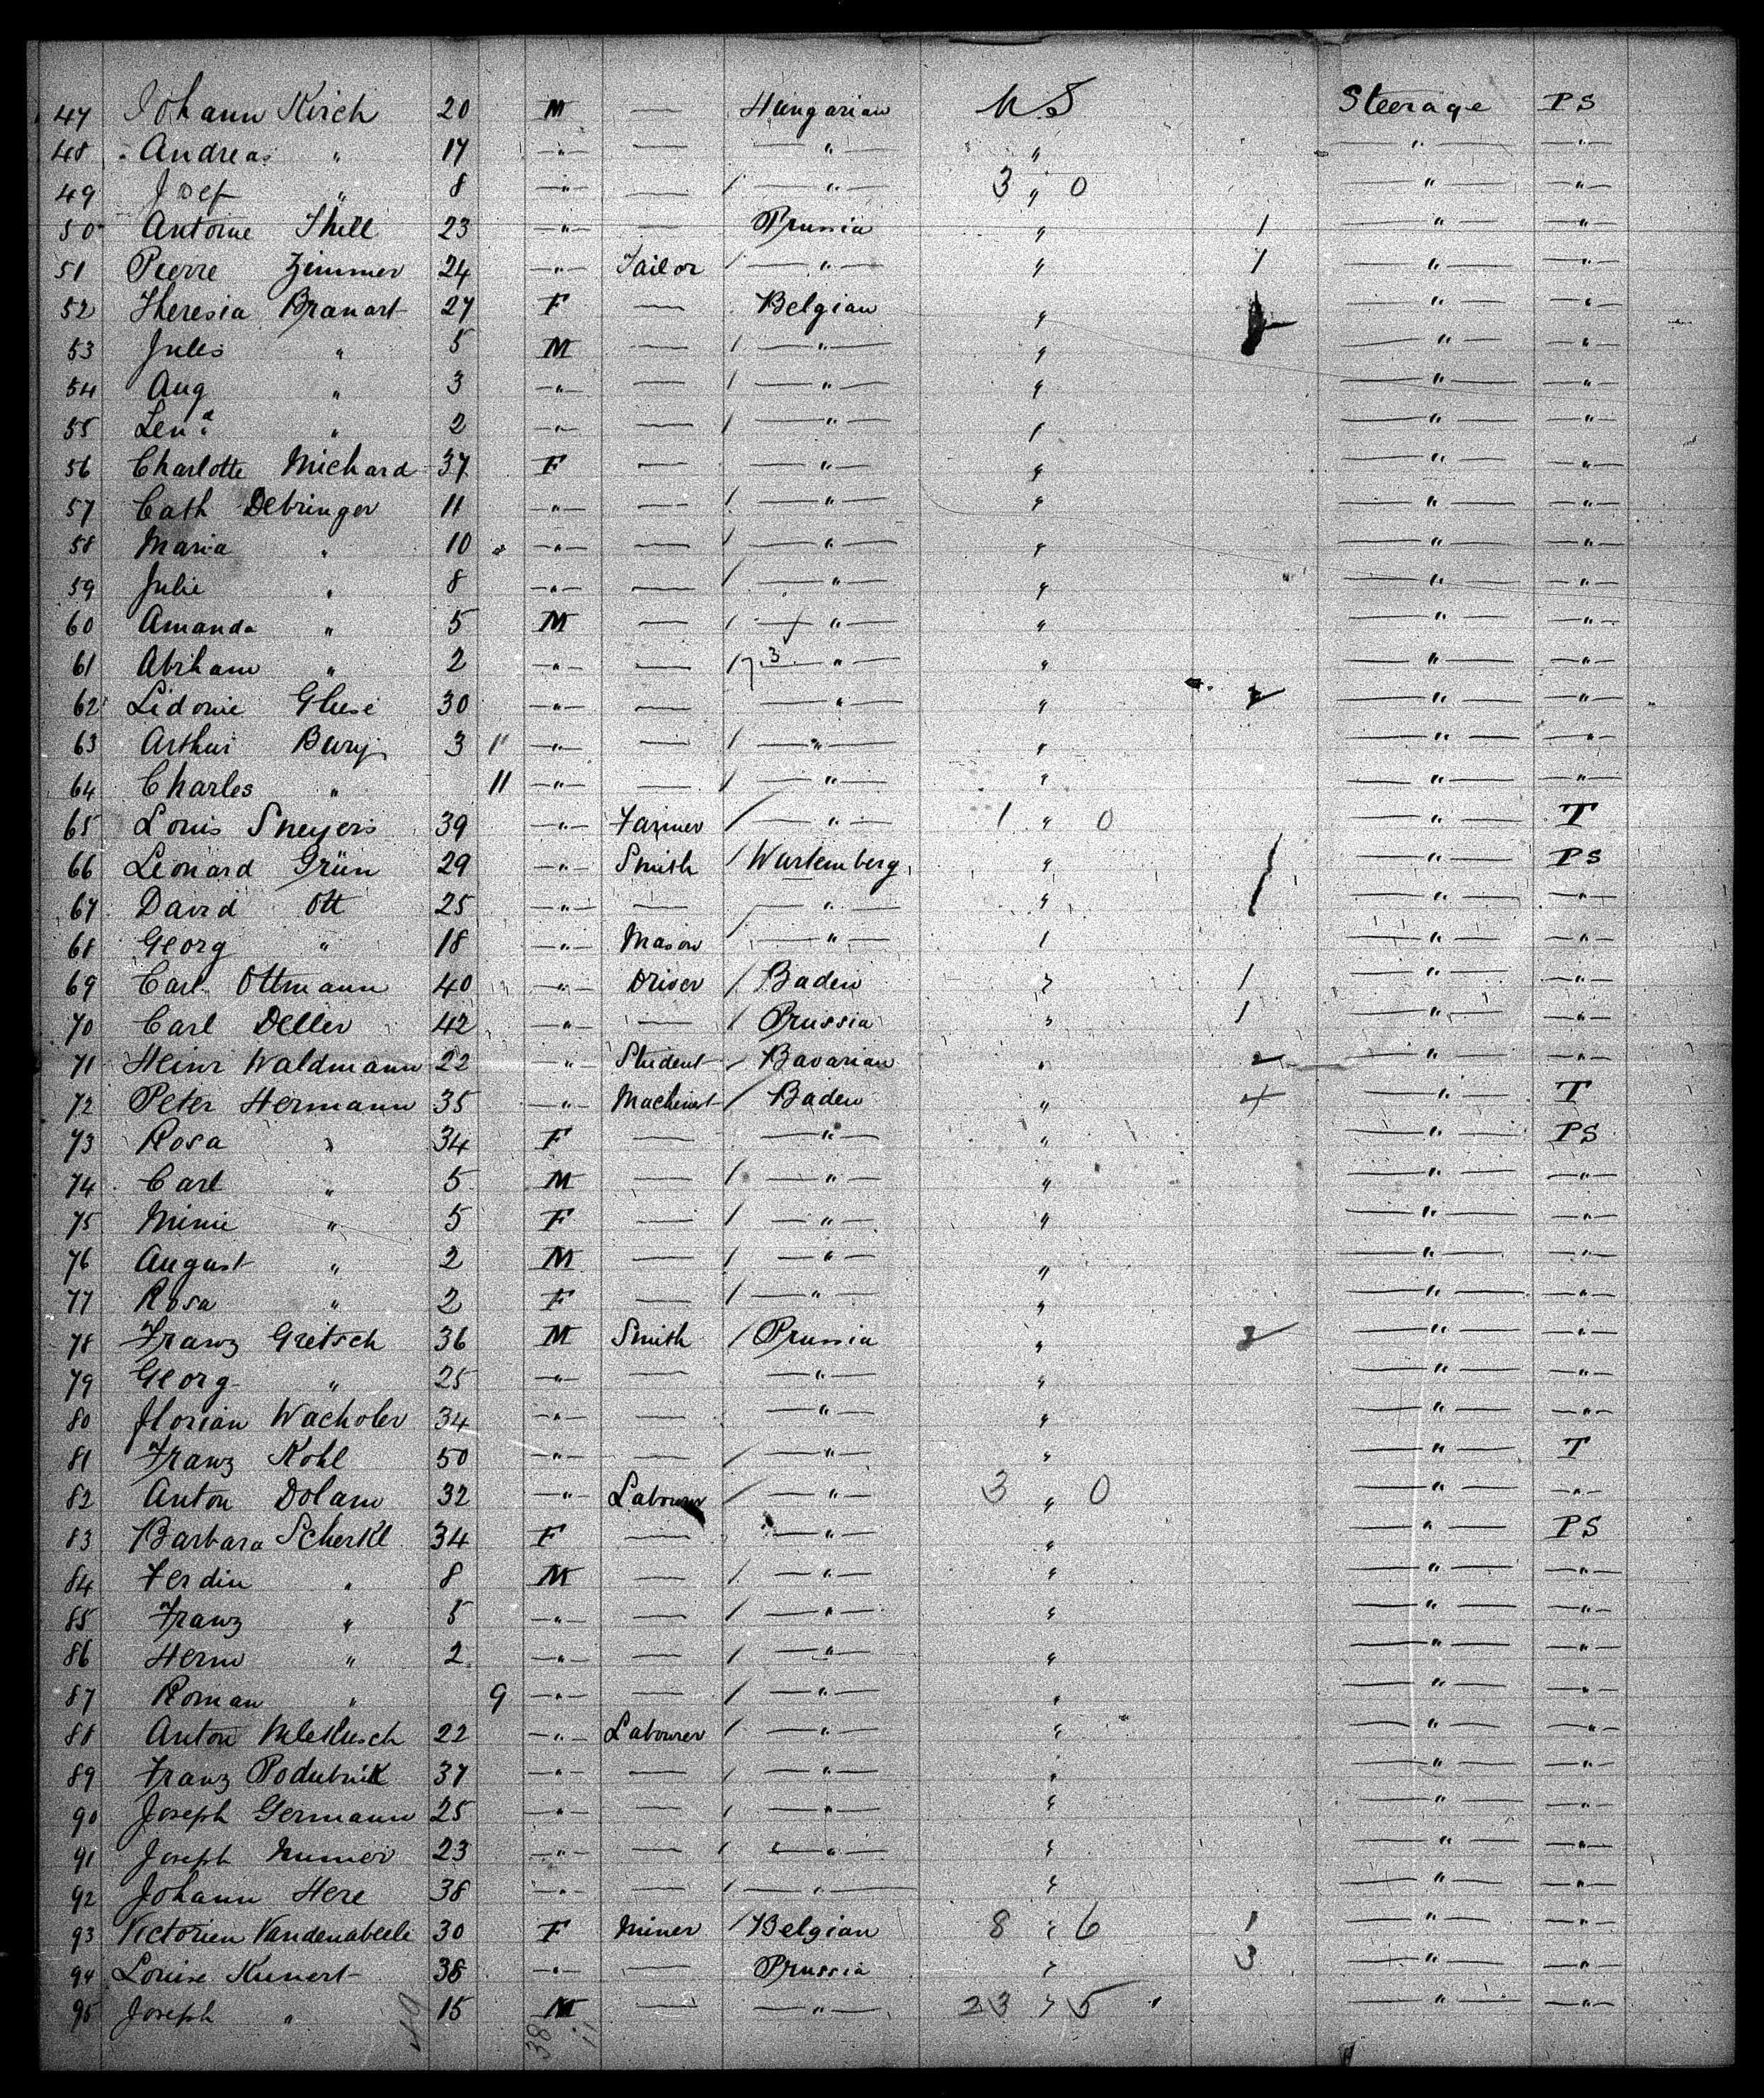 47 Johann Kirch 20 M — Hungarian U.S Steerage PS
48 Andreas " 17 —"— — —"— " —"— —"—
49 Josef " 8 —"— — / —"— 3 " 0 —"— —"—
50 Antoine Thill 23 —"— — Prussia " 1 —"— —"—
51 Pierre Zimmer 24 —"— Tailor / —"— " 1 —"— —"—
52 Theresia Branart 27 F — Belgian " —"— —"—
53 Jules " 5 M — / —"— " —"— —"—
54 Aug " 3 —"— — / —"— " —"— —"—
55 Lena " 2 —"— — / —"— " —"— —"—
56 Charlotte Michard 37 F — —"— " —"— —"—
57 Cath Debringer 11 —"— — / —"— " —"— —"—
58 Maria " 10 —"— — / —"— " —"— —"—
59 Julie " 8 —"— — / —"— " —"— —"—
60 Amanda " 5 M — / —"— " —"— —"—
61 Abrham " 2 —"— — / 7.3 —"— " —"— —"—
62 Lidonie 30 —"— — —"— " 2 —"— —"—
63 Arthur 3 11 —"— — / —"— " —"— —"—
64 Charles " 11 —"— — / —"— " —"— —"—
65 Louis Sneyers 39 —"— Farmer / —"— 1 " 0 —"— T
66 Leonard Grün 29 —"— Smith / Wurtemberg " / —"— PS
67 David Ott 25 —"— — —"— " / —"— —"—
68 Georg " 18 —"— Mason / —"— " —"— —"—
69 Carl Ottmann 40 —"— Driver / Baden " 1 —"— —"—
70 Carl Deller 42 —"— — / Prussia " 1 —"— —"—
71 Heinr Waldmann 22 " Student / Bavarian " 2 —"— —"—
72 Peter Hermann 35 —"— Machinist / Baden " 4 —"— T
73 Rosa " 34 F — —"— " —"— PS
74 Carl " 5 M — / —"— " —"— —"—
75 Minie " 5 F — / —"— " —"— —"—
76 August " 2 M — / —"— " —"— —"—
77 Rosa " 2 F — / —"— " —"— —"—
78 Franz Gretsch 36 M Smith / Prussia " 2 —"— —"—
79 Georg " 25 —"— — —"— " —"— —"—
80 Florian Wacholer 34 —"— — —"— " —"— —"—
81 Franz Kohl 50 —"— — / —"— " —"— T
82 Anton Dolam 32 —"— Labourer / —"— 3 " 0 —"— —"—
83 Barbara Scherkl 34 F — —"— " —"— PS
84 Ferdin " 8 M — / —"— " —"— —"—
85 Franz " 5 —"— — / —"— " —"— —"—
86 Herm " 2 —"— — / —"— " —"— —"—
87 Roman " 9 —"— — / —"— " —"— —"—
88 Anton Mlekusch 22 —"— Labourer / —"— " —"— —"—
89 Franz Podubnik 37 —"— — / —"— " —"— —"—
90 Joseph Germann 25 —"— — / —"— " —"— —"—
91 Joseph 23 —"— — / —"— " —"— —"—
92 Johann Here 38 —"— — / —"— " —"— —"—
93 Victorien Vandenabeele 30 F Miner / Belgian 8 " 6 1 —"— —"—
94 Louise Kunert 38 —"— — Prussia " 3 —"— —"—
95 Joseph " 15 M — —"— 23 " 5 —"— —"—
49 38 11